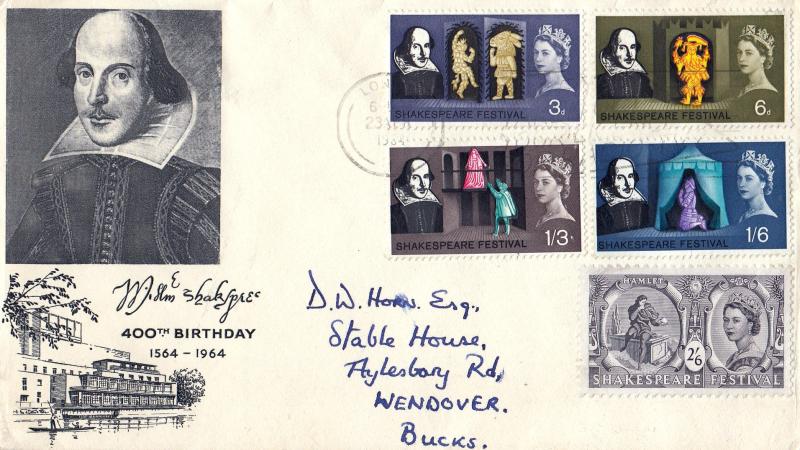 SHAKESPEARE FESTIVAL
3d
SHAKESPEARE FESTIVAL
6d
1964
SHAKESPEARE FESTIVAL
1/3
SHAKESPEARE FESTIVAL
1/6
Willm Shakspre
400TH BIRTHDAY
1564 - 1964
D.W. Horn. Esq.,
Stable House,
Aylesbury Rd,
WENDOVER.
BUCKS.
HAMLET
2/6
SHAKESPEARE FESTIVAL